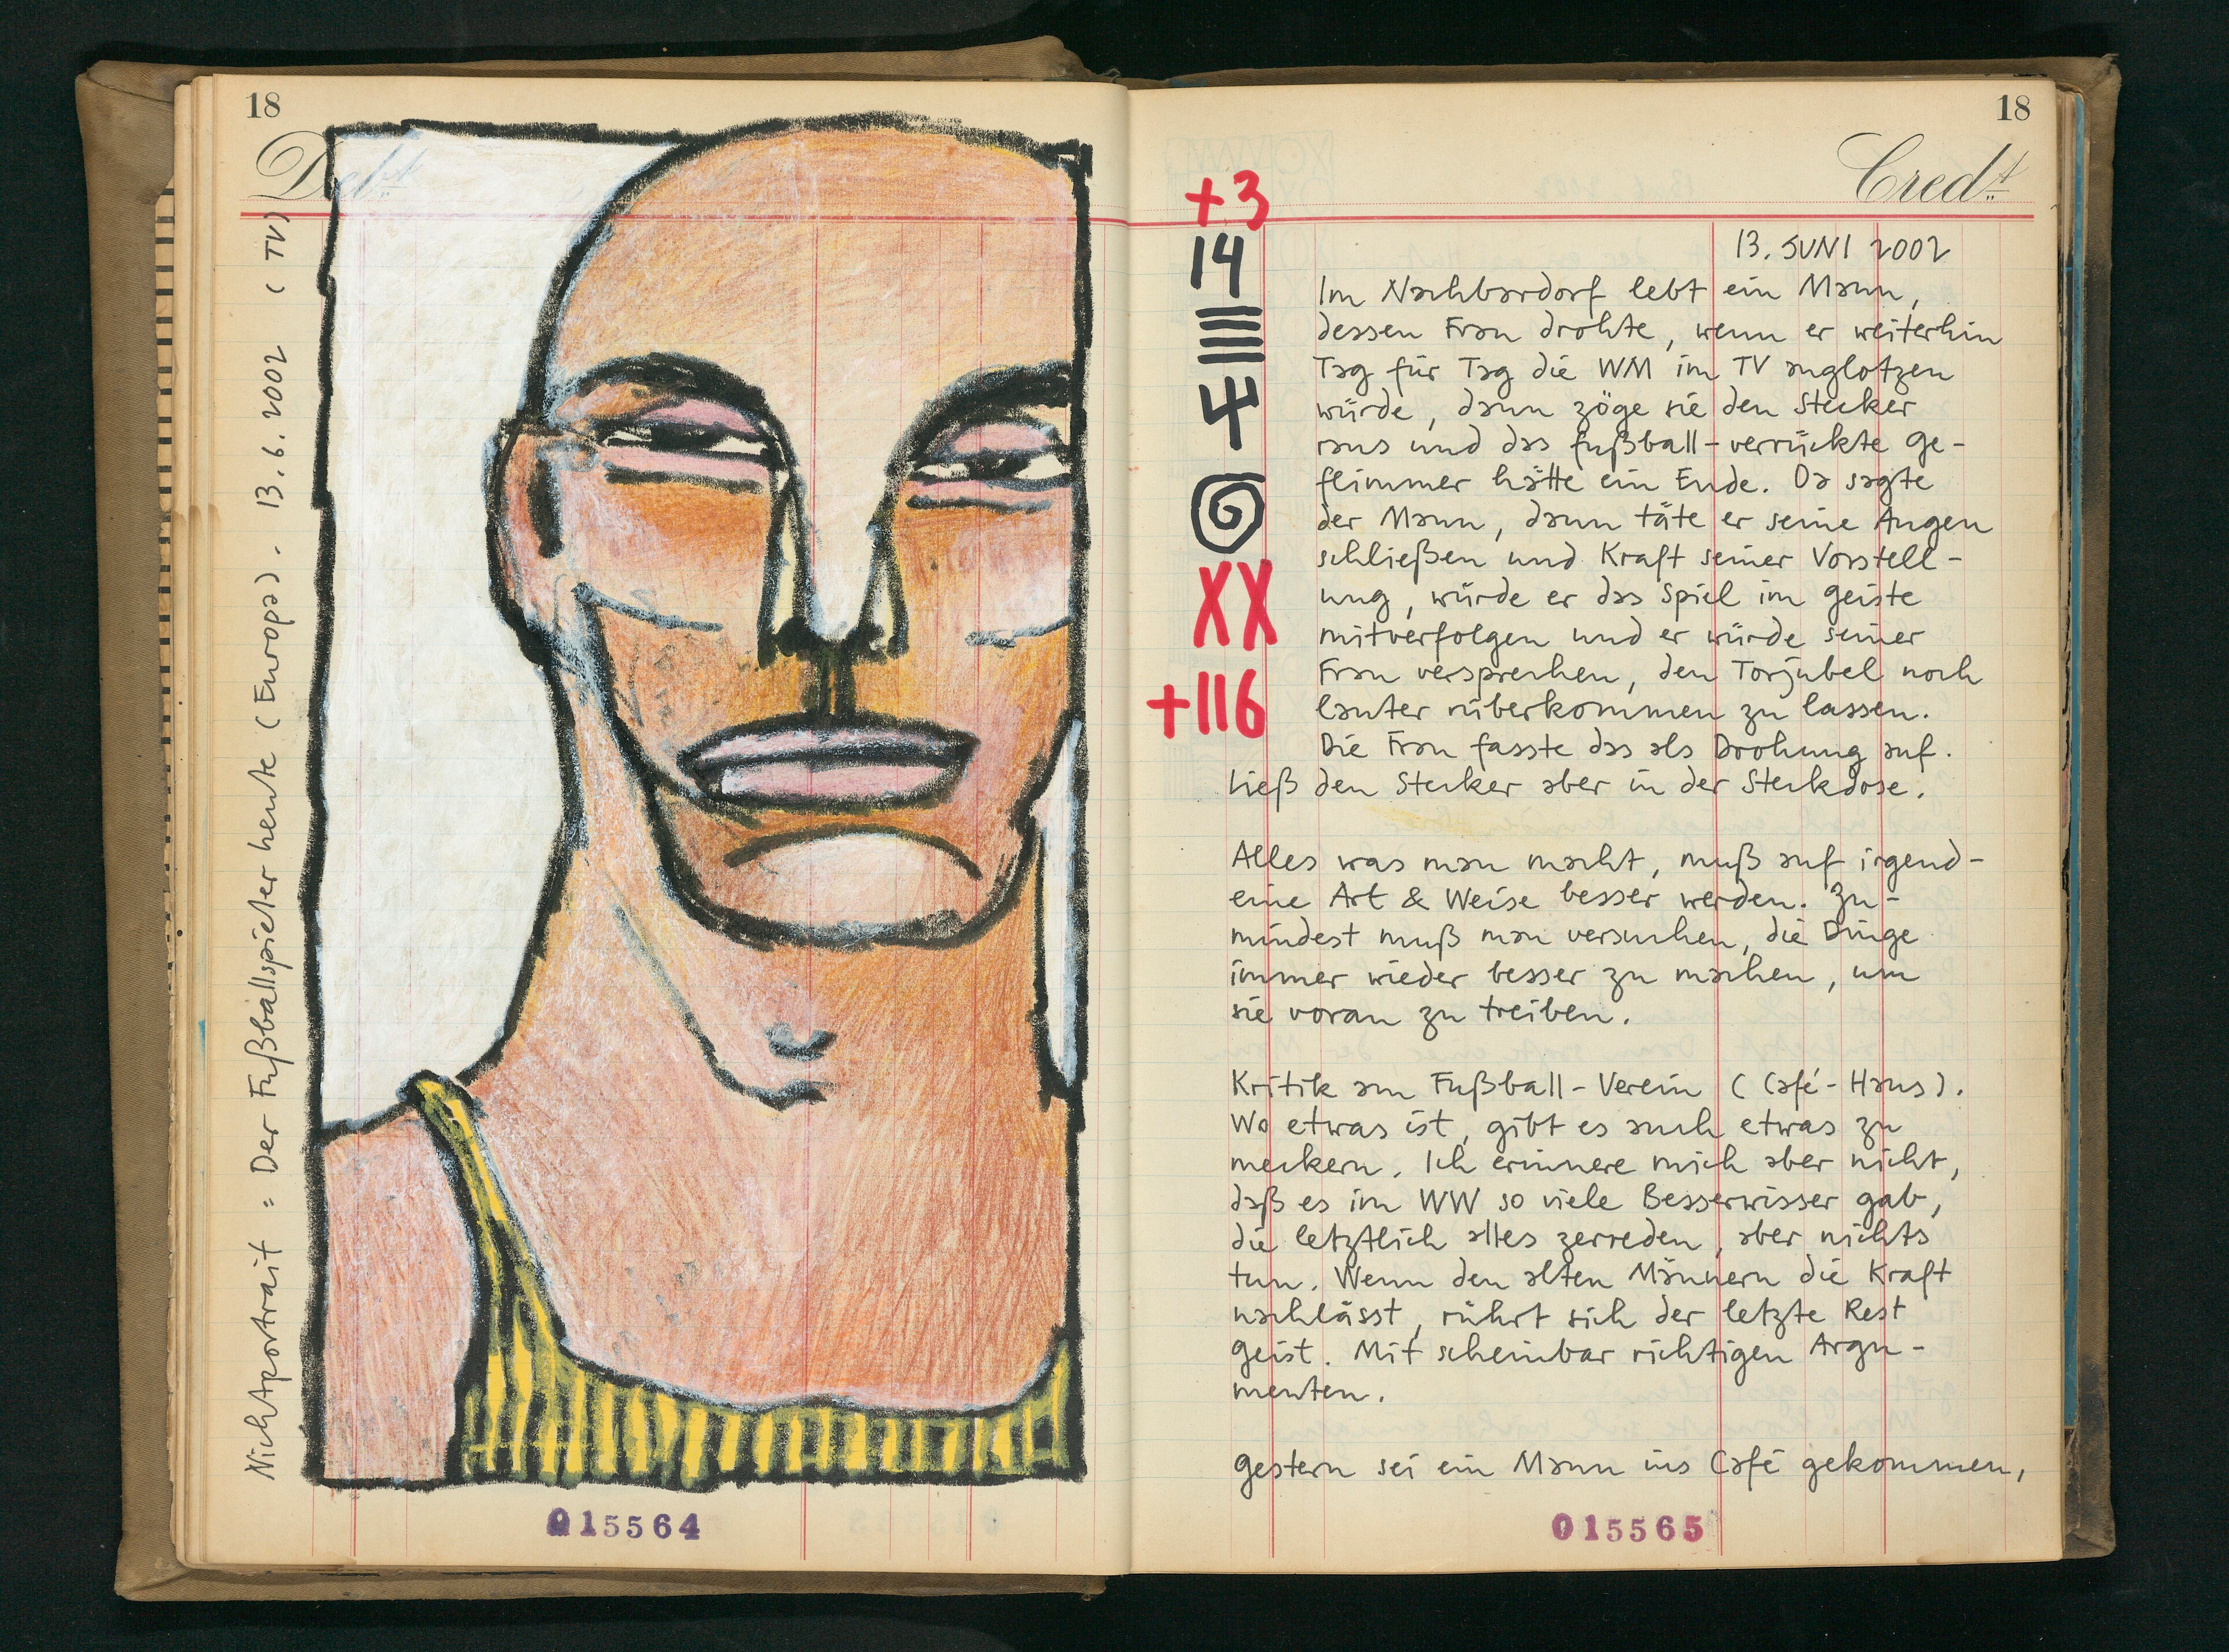 18
Debt
Nichtportrait = Der Fußballspieler heute (Europa). 13.6.2002 (TV)
015564
18
Credt
+3
14
4
XX
+116
13. JUNI 2002
Im Nachbardorf lebt ein Mann,
dessen Frau drohte, wenn er weiterhin
Tag für Tag die WM im TV anglotzen
würde, dann zöge sie den Stecker
raus und das fußball-verrückte Ge-
flimmer hätte ein Ende. Da sagte
der Mann, dann täte er seine Augen
schließen und Kraft seiner Vorstell-
ung, würde er das Spiel im Geiste
mitverfolgen und er würde seiner
Frau versprechen, den Torjubel noch
lauter rüberkommen zu lassen.
Die Frau fasste das als Drohung auf.
Ließ den Stecker aber in der Steckdose.
Alles was man macht, muß auf irgend-
eine Art & Weise besser werden. Zu-
mindest muß man versuchen, die Dinge
immer wieder besser zu machen, um
sie voran zu treiben.
Kritik am Fußball-Verein (Café-Haus).
Wo etwas ist, gibt es auch etwas zu
meckern. Ich erinnere mich aber nicht,
daß es im WW so viele Besserwisser gab,
die letztlich alles zerreden, aber nichts
tun. Wenn den alten Männern die Kraft
nachlässt, rührt sich der letzte Rest
Geist. Mit scheinbar richtigen Argu-
menten.
Gestern sei ein Mann ins Café gekommen,
015565